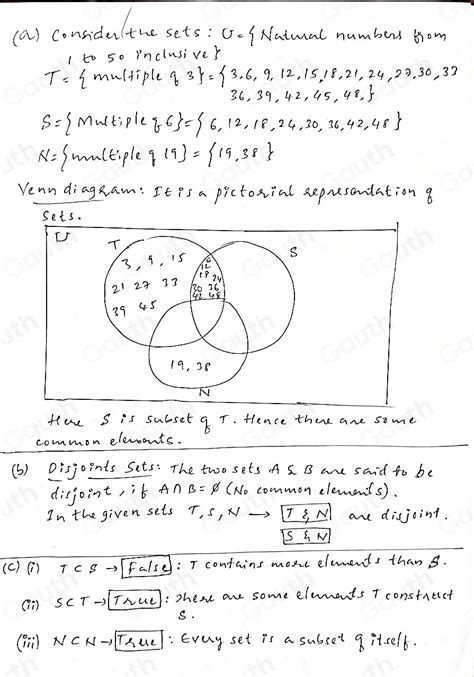 (a) Consider the sets : U = { Natural numbers from
1 to 50 inclusive }
T = { multiple of 3 } = { 3, 6, 9, 12, 15, 18, 21, 24, 27, 30, 33
36, 39, 42, 45, 48, }
S = { Multiple of 6 } = { 6, 12, 18, 24, 30, 36, 42, 48 }
N = { multiple of 19 } = { 19, 38 }
Venn diagram : It is a pictorial representation of
sets.
U
T
S
3, 9, 15
6
12
18 24
21 27 33
30 36
42 48
39 45
19, 38
N
Here S is subset of T. Hence there are some
common elements.
(b) Disjoints Sets : The two sets A & B are said to be
disjoint, if A ∩ B = ∅ (No common elements).
In the given sets T, S, N → T & N are disjoint.
S & N
(C) (i) T ⊂ S → False : T contains more elements than S.
(ii) S ⊂ T → True : there are some elements T construct
S.
(iii) N ⊂ N → True : Every set is a subset of itself.